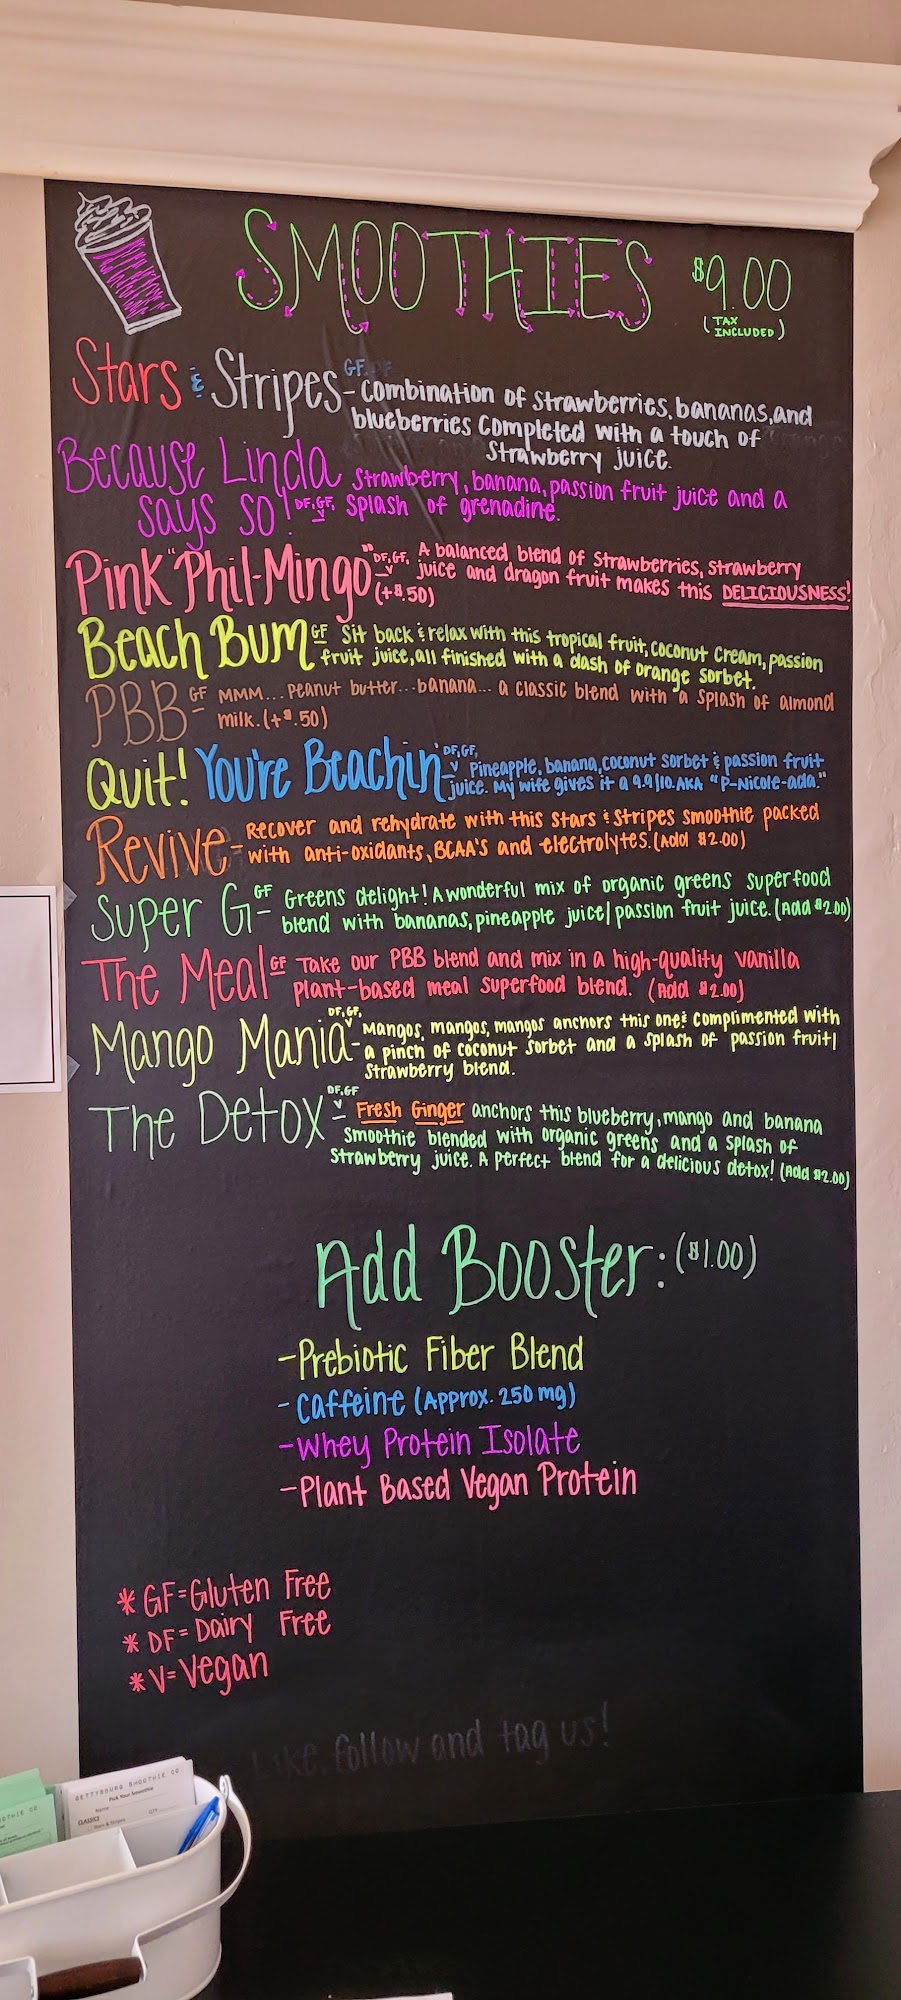 SMOOTHIES $9.00
(TAX INCLUDED)
Stars & Stripes GF - Combination of strawberries, bananas, and
blueberries completed with a touch of
strawberry juice.
Because Linda Strawberry, banana, passion fruit juice and a
says so! DF, GF, V - splash of grenadine.
Pink "Phil-Mingo" DF, GF, V - A balanced blend of strawberries, strawberry
juice and dragon fruit makes this DELICIOUSNESS!
(+$.50)
Beach Bum GF - Sit back & relax with this tropical fruit, coconut cream, passion
fruit juice, all finished with a dash of orange sorbet.
PBB GF - MMM... Peanut butter... banana... a classic blend with a splash of almond
milk. (+$.50)
Quit! You're Beachin' DF, GF, V - Pineapple, banana, coconut sorbet & passion fruit
juice. My wife gives it a 9.9/10. AKA "P-Nicole-ada."
Revive - Recover and rehydrate with this Stars & Stripes smoothie packed
with anti-oxidants, BCAA's and electrolytes. (Add $2.00)
Super G GF - Greens delight! A wonderful mix of organic greens superfood
blend with bananas, pineapple juice/passion fruit juice. (Add $2.00)
The Meal GF - Take our PBB blend and mix in a high-quality vanilla
plant-based meal superfood blend. (Add $2.00)
Mango Mania DF, GF, V - Mangos, mangos, mangos anchors this one & complimented with
a pinch of coconut sorbet and a splash of passion fruit/
strawberry blend.
The Detox DF, GF V - Fresh Ginger anchors this blueberry, mango and banana
smoothie blended with organic greens and a splash of
strawberry juice. A perfect blend for a delicious detox! (Add $2.00)
Add Booster: ($1.00)
- Prebiotic Fiber Blend
- Caffeine (Approx. 250 mg)
- Whey Protein Isolate
- Plant Based Vegan Protein
* GF = Gluten Free
* DF = Dairy Free
* V = Vegan
Like, follow and tag us!
GETTYSBURG SMOOTHIE CO.
Pick Your Smoothie
Name
CLASSICS QTY
Stars & Stripes